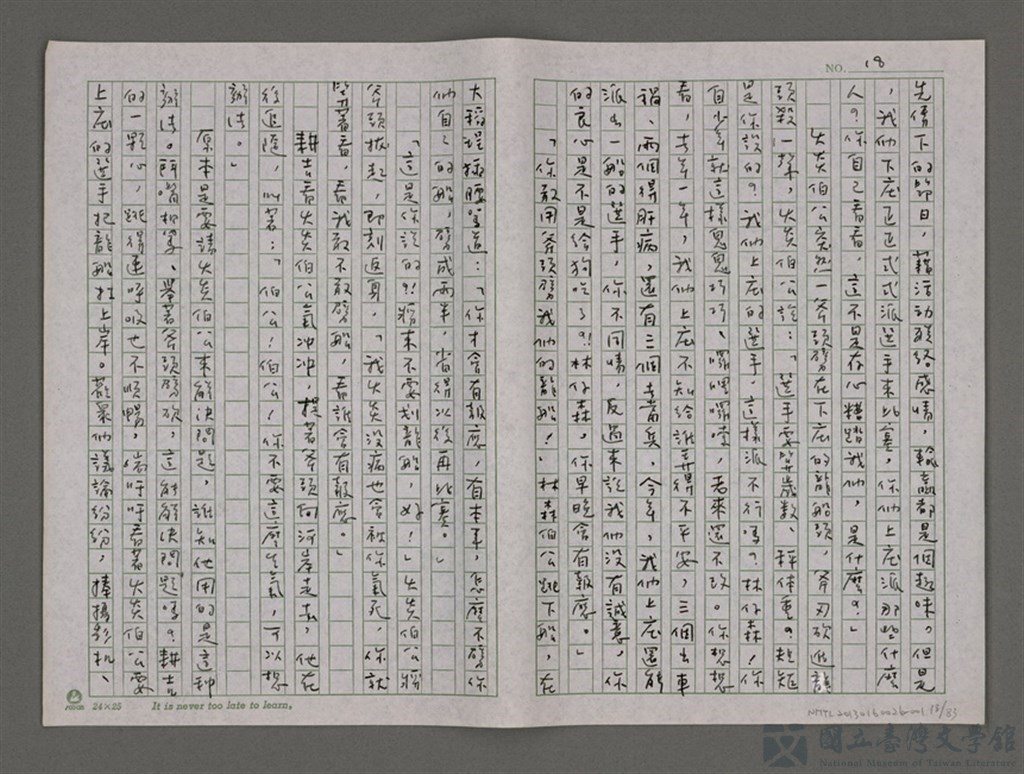 NO. 18
先傳下的節日，藉活動聯絡感情，輸贏都是個趣味，但是
，我們下庄正正式式派選手來比賽，你們上庄派那些什麼
人？你自己看看，這不是存心糟蹋我們，是什麼？」
火炎伯公突然一斧頭劈在下庄的龍船頭，斧刃砍進龍
頭殺一擊，火炎伯公說：「選手要算歲數、秤体重。矩矩
是你說的？我們上庄的選手，這樣派不行嗎？林仔森！你
自少年就這樣鬼鬼巧巧、囉哩囉嗦，老來還不改。你想想
看，去年一年，我們上庄不知給誰弄得不平安，三個出車
禍、兩個得肝病，還有三個去當兵，今年，我們上庄還能
派出一船的選手，你不同情，反過來說我們沒有誠意，你
的良心是不是給狗吃了？！林仔森，你早晚會有報應。」
「你敢用斧頭劈我們的龍船！」林森伯公跳下船，在
大稻埕插腰等道：「你才會有報應，有本事，怎麼不劈你
們自己的船，劈成兩半，省得以後再比賽。」
「這是你說的？！將來不要划龍船，好！」火炎伯公將
斧頭拔起，即刻返身，「我火炎沒病也會被你氣死，你就
望著看，看我敢不敢劈船，看誰會有報應。」
耕吉看火炎伯公氣冲冲，提著斧頭向河岸走去，他在
後追隨，叫著：「伯公！伯公！你不要這麼生氣，可以想
辦法。」
原本是要請火炎伯公來解決問題，誰知他用的是這種
辦法。鬥嘴相罵、舉著斧頭劈砍，這能解決問題嗎？耕吉
的一顆心，跳得連呼吸也不順暢，喘吁吁看著火炎伯公要
上庄的選手把龍船扛上岸。觀眾們議論紛紛，捧攝影机、
24×25 It is never too late to learn.
NMTL20130160026-001 18/83
國立臺灣文學館
National Museum of Taiwan Literature